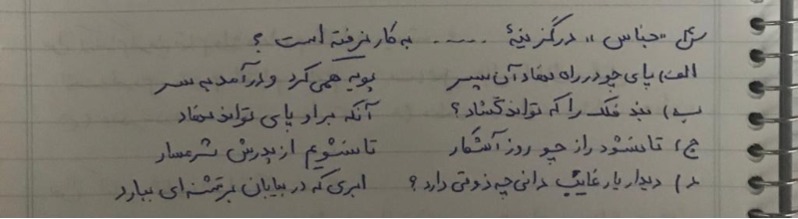 س۱) «جناس» در گزینهٔ ...... به کار نرفته است ؟
الف) پای چو در راه نهاد آن پسر پویه همی کرد و درآمد به سر
ب) بند فلک را که تواند گشاد ؟ آنکه بر او پای تواند نهاد
ج) تا نشود راز چو روز آشکار تا نشویم از پدرش شرمسار
د) دیدار یار غایب دانی چه ذوقی دارد ؟ ابری که در بیابان بر تشنه ای ببارد